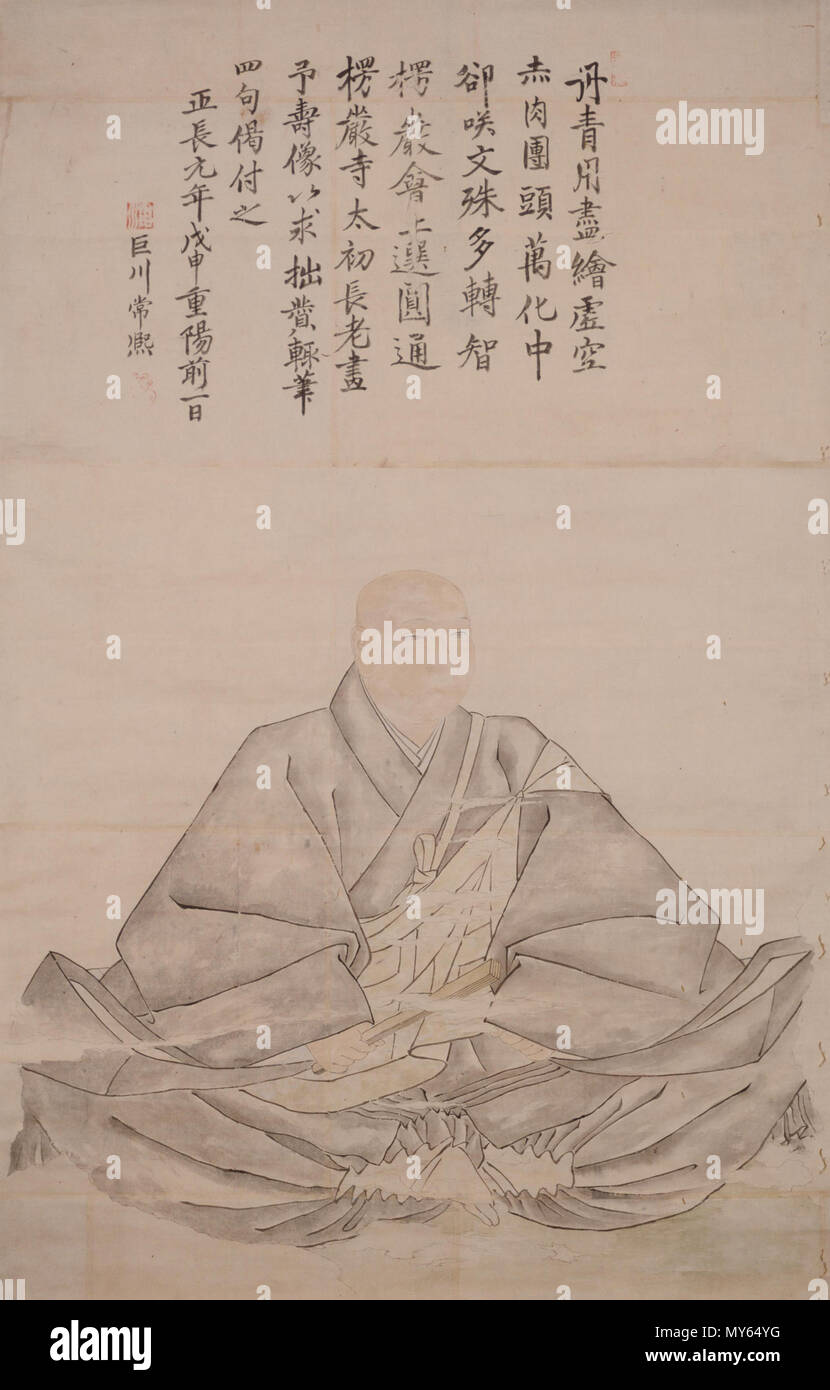 丹青用盡繪虛空
赤肉團頭萬化中
卻咲文殊多轉智
楞嚴會上選圓通
楞嚴寺太初長老畫
予壽像以求拙賛輙筆
四句偈付之
正長元年戊申重陽前一日
巨川常凞
a
alamy
a
alamy
alamy
Image ID: MY64YG
www.alamy.com